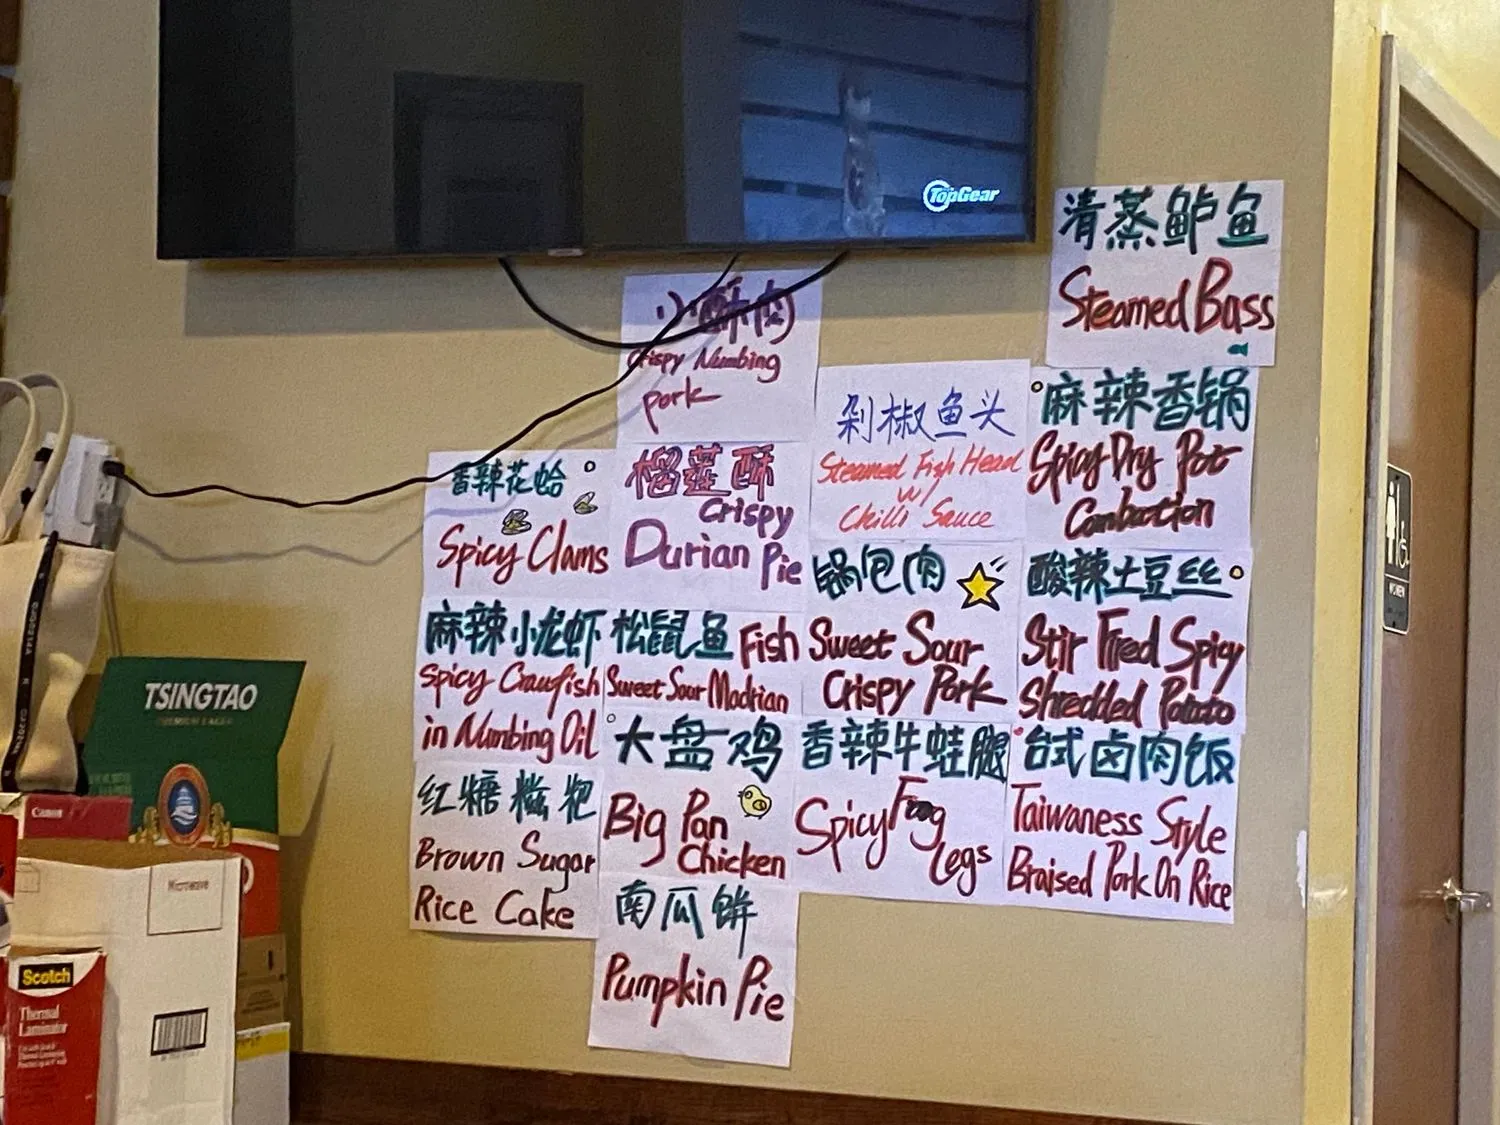 TopGear
清蒸鲈鱼
Steamed Bass
小酥肉
Crispy Numbing
pork
剁椒鱼头
Steamed Fish Head
w/
Chilli Sauce
麻辣香锅
Spicy Dry Pot
香辣花蛤
Spicy Clams
榴莲酥
Crispy
Durian Pie
锅包肉
Sweet Sour
Crispy Pork
酸辣土豆丝
Stir Fired Spicy
Shredded Potato
麻辣小龙虾
Spicy Crawfish
in Numbing Oil
松鼠鱼 Fish
Sweet Sour Madrian
大盘鸡
Big Pan
Chicken
香辣牛蛙腿
Spicy Frog
Legs
台式卤肉饭
Taiwaness Style
Braised Pork On Rice
红糖糍粑
Brown Sugar
Rice Cake
南瓜饼
Pumpkin Pie
WOMEN
TSINGTAO
PREMIUM LAGER
Canon
Microwave
Scotch
Thermal
Laminator